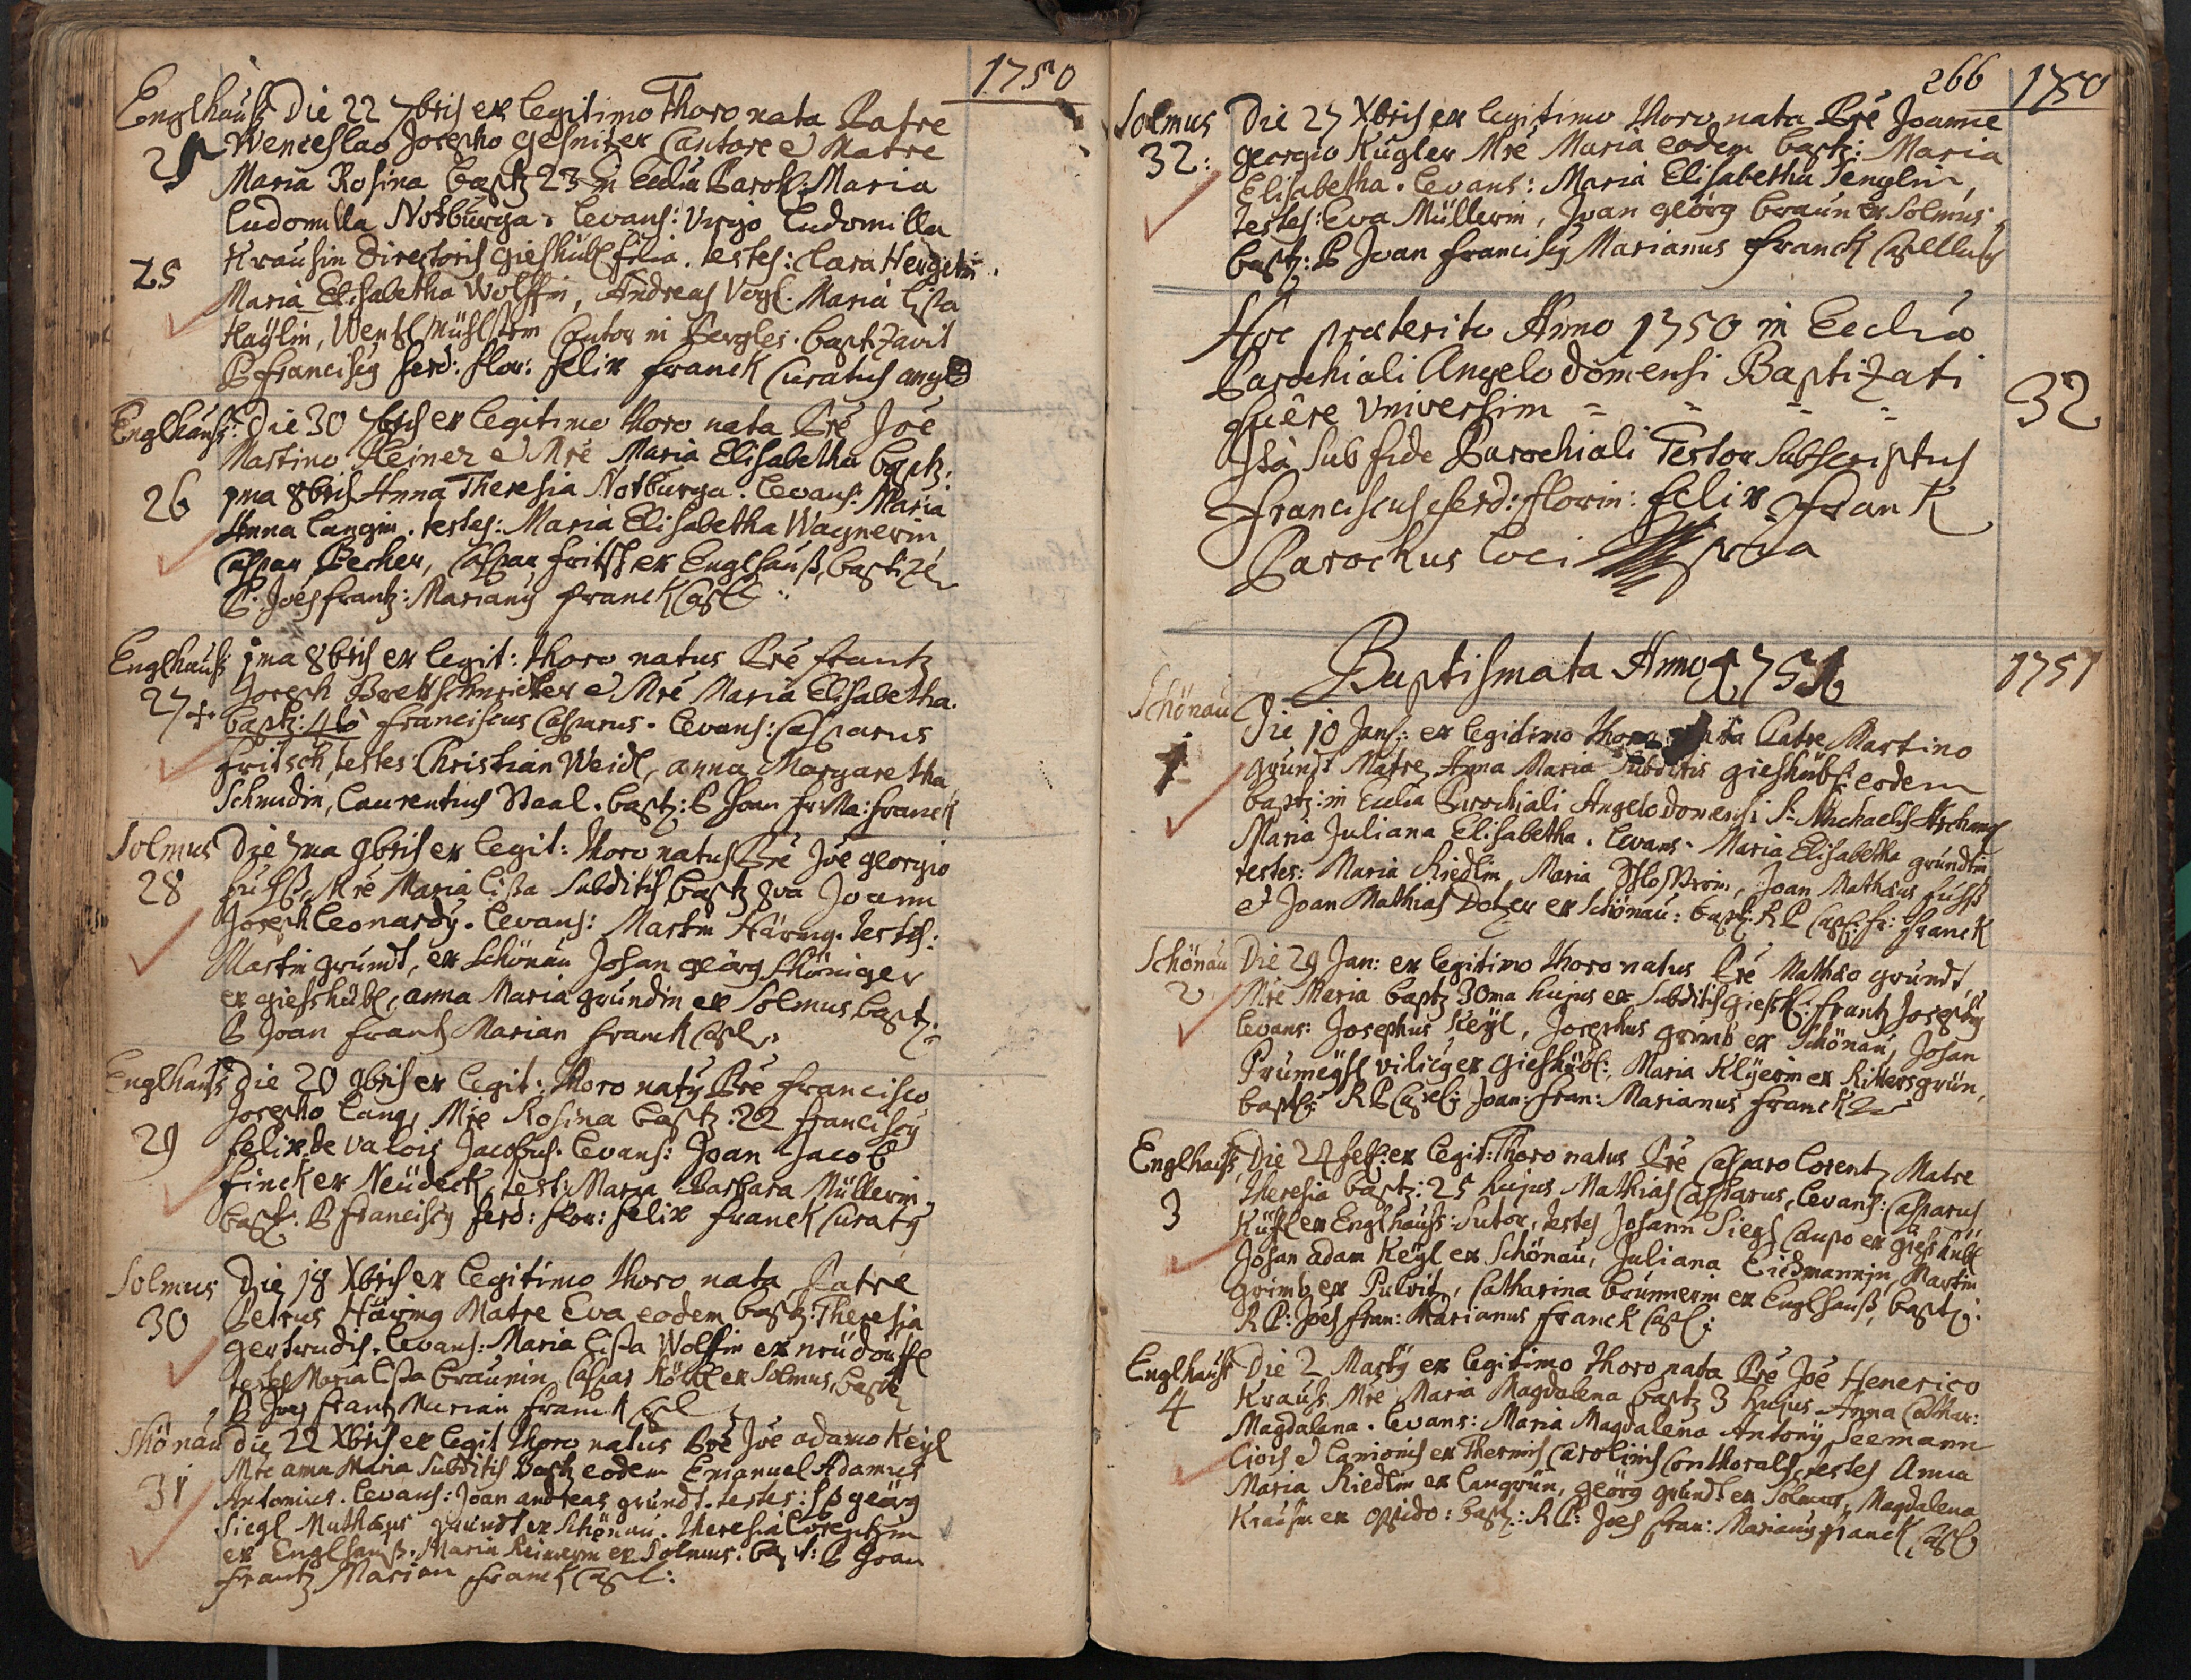 1750
Englhauß Die 22 7bris ex legitimo Thoro nata Patre
Wenceslao Josepho Gesnitzer Cantore et Matre
25
Maria Rosina baptz 23 in Ecclia Paroch: Maria
Ludomilla Notburga. Levans: Virgo Ludomilla
Krausin Directoris Gieshübl filia. testes: Clara Hergetin
25
Maria Elisabetha Wolffin, Andreas Vogl. Maria Lisa
Haylin, Wentzl Mühlstein Cantor in Bergles. baptizavit
P Franciscy Ferd: Flor: Felix Franck Curatus
Englhauß: Die 30 7bris ex legitimo thoro nata Pre Joe
Martino Reiner et Mre Maria Elisabetha baptz:
26 1ma 8bris Anna Theresia Notburga. Levans: Maria
Anna Langin. testes: Maria Elisabetha Wagnerin
Caspar Becher, Caspar Fritsch ex Englhauß, baptize
P. Joes Frantz: Mariany Franck Capl
Englhauß 1ma 8bris ex legit: thoro natus Pre Frantz
Joseph Brettschneider et Mre Maria Elisabetha.
27 baptz: 4to Franciscus Casparus. Levans: Casparus
Fritsch, testes: Christian Weidl, anna Margaretha
Schmidin, Laurentius Staal. baptz: P Joan Fr: Ma: Franck
Solmus Die 7ma 9bris ex legit: thoro natus Pre Joe georgio
28 Fuchß, Mre Maria Lisa Subditis baptz 8va Joann
Joseph Leonardy. Levans: Martin Häring. testes:
Martin grundt, ex Schönau Johan georg Schöniger
ex gieshübl, anna Maria grundin ex Solmus bapt:
P Joan Frantz Marian Franck Capl
Englhauß Die 20 9bris ex legit: thoro naty Pre Francisco
Josepho Lang, Mre Rosina baptz: 22 Franciscy
29 Felix de Valois Jacobus. Levans: Joan Jacob
Finck ex Neudeck, test: Maria Barbara Müllerin.
bapt: P Franciscy Ferd: Flor: Felix Franck Curaty
Solmus Die 18 Xbris ex legitimo thoro nata Patre
30 Petrus Häring Matre Eva eodem baptz: Theresia
gertrudis. Levans: Maria Lisa Wolfin ex neudörffl
testes Maria Lisa Braunin Caspar Köckl ex Solmus, baptz
P Joes Frantz Marian Franck Capl
Schönau die 22 Xbris ex legit thoro natus Pre Joe adamo Keyl
31 Mre anna Maria Subditis baptz eodem Emanuel Adamus
Antonius. Levans: Joan andreas grundt. testes: georg
Siegl Mathaus grundt ex Schönau. Theresia Lorentzin
ex Englhauß. Maria Reinerin ex Solmus. bapt: P Joan
Frantz Marian Franck Capl:
266 1750
Solmus Die 27 Xbris ex legitimo thoro nata Pre Joanne
32: georgio Kugler Mre Maria eodem baptz: Maria
Elisabetha. Levans: Maria Elisabetha Senglin,
testes: Eva Müllerin, Joan georg Braun ex Solmus.
baptz: P Joan Franciscy Marianus Franck Capellus
Hoc praeterito Anno 1750 in Ecclia
Parochiali Angelodomensi Baptizati
fuere Universim 32
Ita Sub fide Parochiali Testor Subscriptus
Franciscus Ferd: Florin: Felix Frank
Parochus Loci
Baptismata Anno 1751 1751
Schönau Die 10 Jan: ex legitimo thoro nata Patre Martino
1 grundt Matre Anna Maria Subditis gieshübl: eodem
baptz: in Ecclia Parochiali Angelodomensi S. Michaelis Archang
Maria Juliana Elisabetha. Levans. Maria Elisabetha grundtin
testes: Maria Riedlin, Maria, Joan Mathäus Fuchß
et Joan Mathias Dotzer ex Schönau: baptz: R P Capl: Fr: Franck
Schönau Die 29 Jan: ex legitimo thoro natus Pre Mathäo grundt,
2 Mre Maria baptz 30ma hujus ex Subditis giesh: Frantz Josephy
Levans: Josephus Keyl, Josephus grimb ex Schönau, Johan
Prumeysl vilicy ex Gieshübl:, Maria Klyerin ex Rittersgrün,
baptz: R P Capel: Joan: Fran: Marianus Franck
Englhauß, Die 24 Feb: ex legit: Thoro natus Pre Casparo Lorentz Matre
3 Theresia baptz: 25 hujus Mathias Casparus, Levans: Casparus
ex Englhauß: Sutor, testes Johann Siegl Caupo ex gieshübl
Johan adam Keyl ex Schönau, Juliana Lissmannin, Martin
grimb ex Pulvitz, Catharina Brunnerin ex Englhauß, baptz:
R P: Joes Fran: Marianus Franck Capl:
Englhauß Die 2 Marty ex legitimo thoro nata Pre Joe Henerico
4 Krauß Mre Maria Magdalena baptz 3 hujus Anna Cathar:
Magdalena. Levans: Maria Magdalena Antony Seemann
Civis et Lanionis ex Thermis Carolinis Conthoralis, testes Anna
Maria Riedlin ex Langrün, georg grundt ex Solmus, Magdalena
Krausin ex oppido: baptz: R P: Joes Fran: Mariany Franck Capl